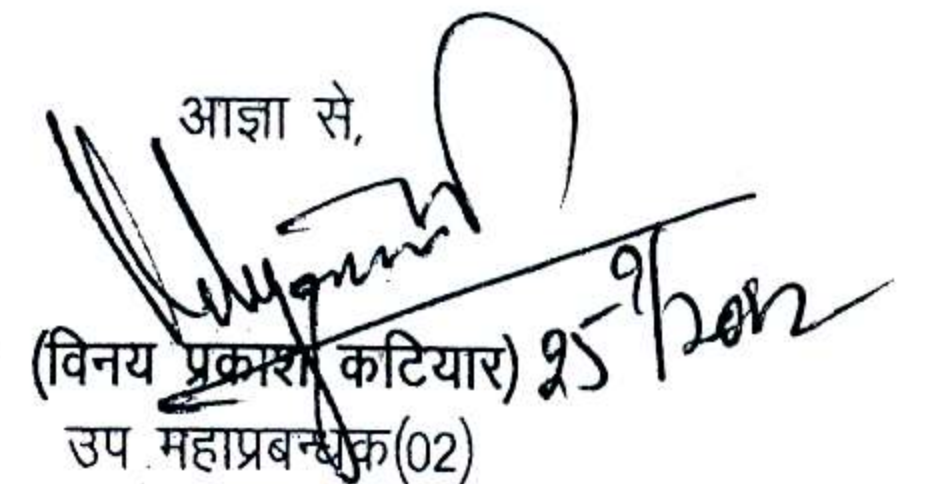 आज्ञा से,
(विनय प्रकाश कटियार) 25/9/2012
उप महाप्रबन्धक(02)